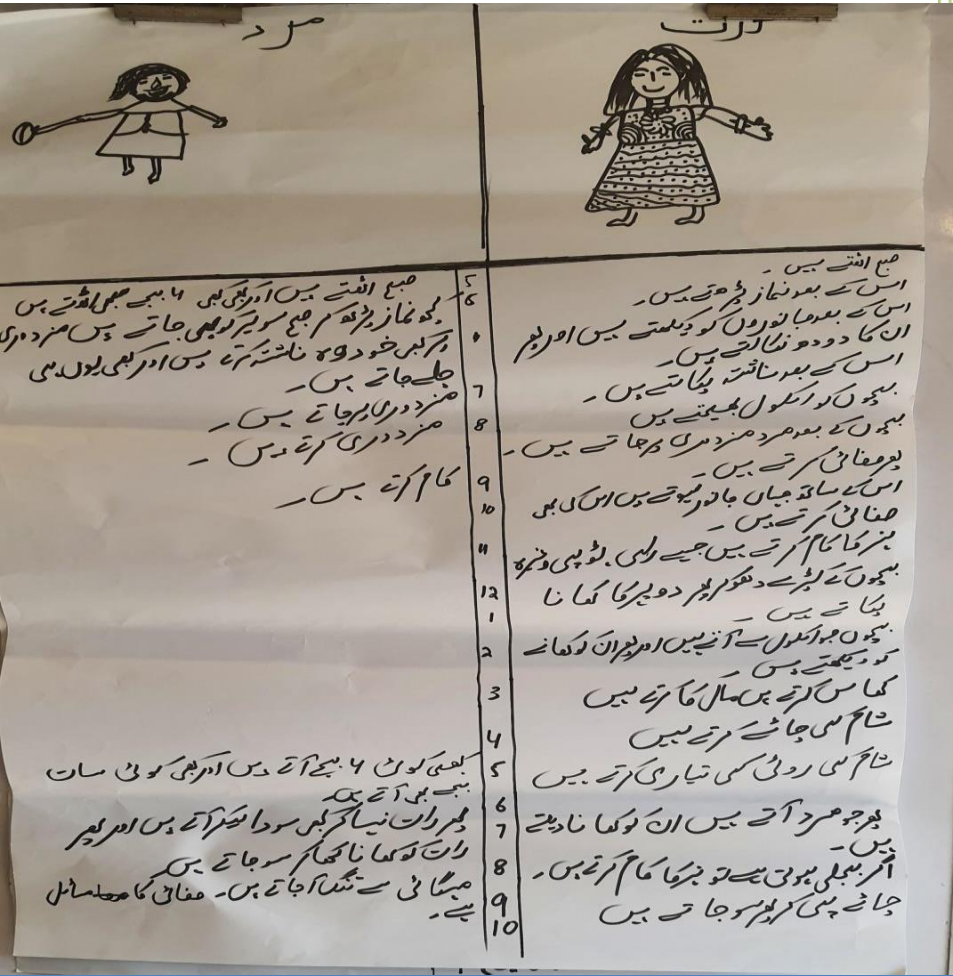 عورت
صبح اٹھتے ہیں۔
اس کے بعد نماز پڑھتے ہیں۔
اس کے بعد جانوروں کو دیکھتے ہیں اور پھر
ان کا دودھ نکالتے ہیں۔
اس کے بعد ناشتہ پکاتے ہیں۔
بچوں کو اسکول بھیجتے ہیں
بچوں کے بعد مرد مزدوری پر جاتے ہیں۔
پھر صفائی کرتے ہیں۔
اس کے ساتھ جہاں جانور ہوتے ہیں اس کی بھی
صفائی کرتے ہیں۔
ہنر کا کام کرتے ہیں جیسے رلی، ٹوپی وغیرہ
بچوں کے کپڑے دھوکر پھر دوپہر کا کھانا
پکاتے ہیں۔
بچوں جو اسکول سے آتے ہیں اور پھر ان کو کھانے
کو دیکھتے ہیں۔
گھاس کرتے ہیں مال کا کرتے ہیں
شام کی چائے کرتے ہیں
شام کی روٹی کی تیاری کرتے ہیں
پھر جو مرد آتے ہیں ان کو کھانا دیتے
ہیں۔
اگر بجلی ہوتی ہے تو ہنر کا کام کرتے ہیں۔
چائے پی کر پھر سو جاتے ہیں
5
6
7
8
9
10
11
12
1
2
3
4
5
6
7
8
9
10
مرد
صبح اٹھتے ہیں اور کبھی کبھی 6 بجے بھی اٹھتے ہیں
کچھ نماز پڑھ کر صبح سویر کو بھی جاتے ہیں مزدوری
اور کبھی خود وہ ناشتہ کرتے ہیں اور کبھی یوں ہی
چلے جاتے ہیں۔
مزدوری پر جاتے ہیں۔
مزدوری کرتے ہیں۔
کام کرتے ہیں۔
کبھی کوئی 6 بجے آتے ہیں اور کبھی کوئی سات
بجے بھی آتے ہیں۔
پھر رات کبھی سودا لیکر آتے ہیں اور پھر
رات کو کھانا کھا کر سو جاتے ہیں۔
مہنگائی سے تنگ آ جاتے ہیں۔ صفائی کا مسائل
ہے۔